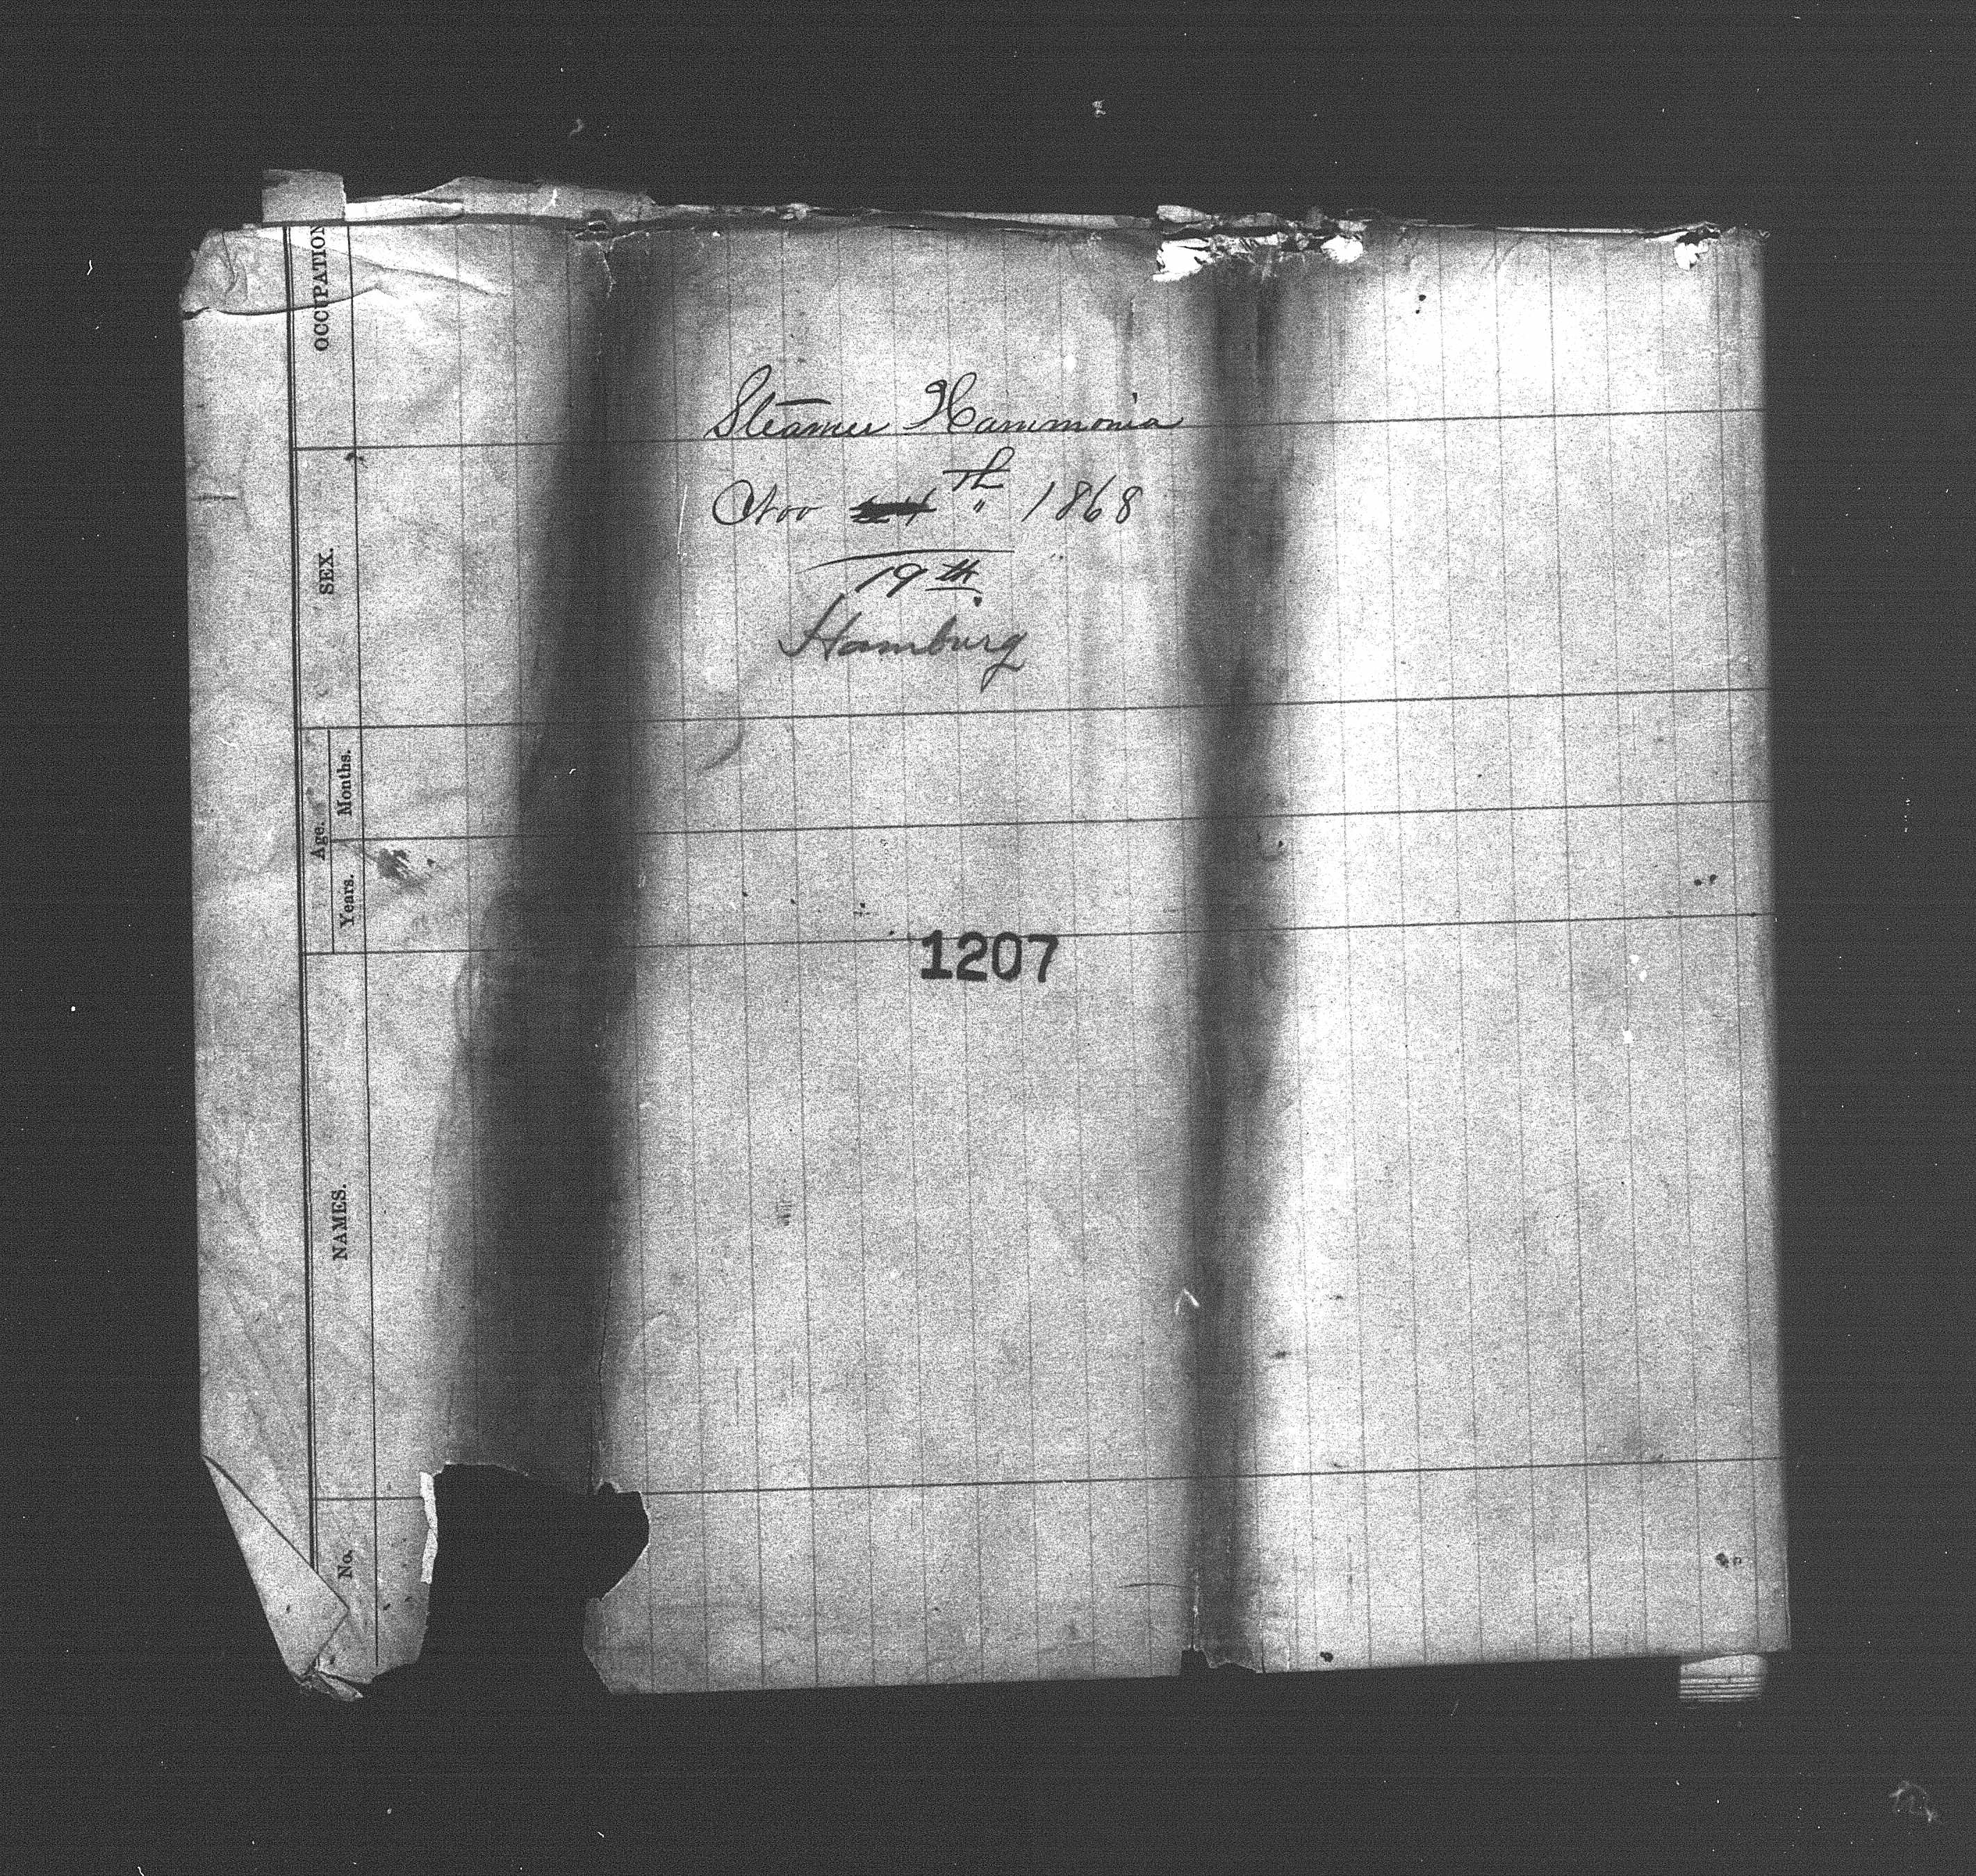 Steamer Hammonia
Nov th 1868
19th
Hamburg
1207
OCCUPATION
SEX.
Age.
Months.
Years.
NAMES.
No.